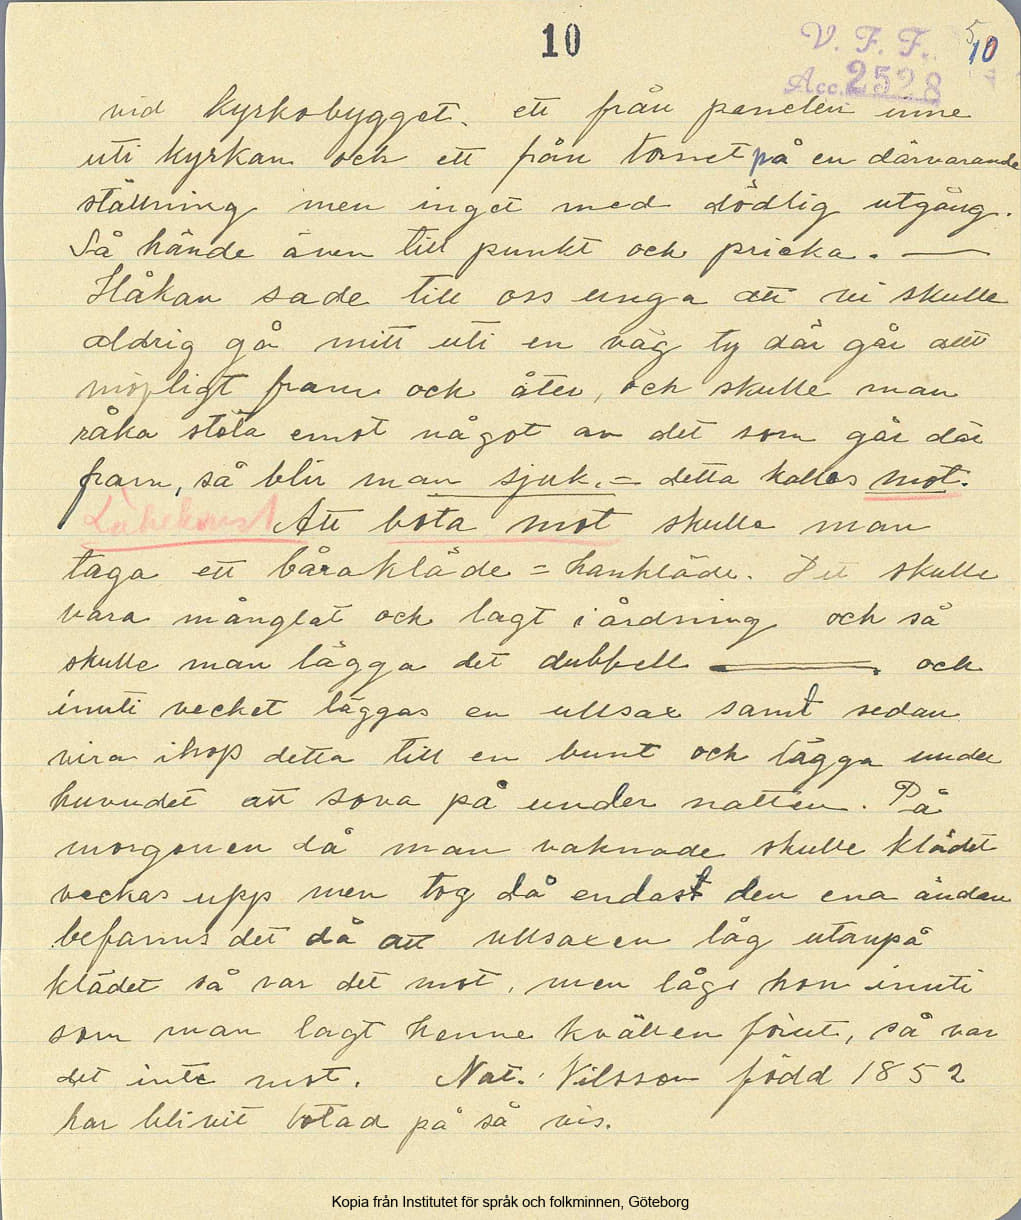 10
V. F. F.
10
Acc. 2528
vid kyrkobygget. ett från panelen inne
uti kyrkan och ett från tornet på en därvarande
ställning men inget med dödlig utgång.
Så hände även till punkt och pricka. —
Håkan sade till oss unga att vi skulle
aldrig gå mitt uti en väg ty där går allt
möjligt fram och åter, och skulle man
råka stöta emot något av det som går där
fram, så blir man sjuk. = detta kallas mot.
Läkekonst Att bota mot skulle man
taga ett båraklåde = handkläde. Det skulle
vara månglat och lagt i årdning och så
skulle man lägga det dubbelt och
inuti vecket läggas en ullsax samt sedan
vira ihop detta till en bunt och lägga under
huvudet att sova på under natten. På
morgonen då man vaknade skulle klädet
veckas upp men tog då endast den ena ändan
befanns det då att ullsaxen låg utanpå
klädet så var det mot, men lågo hon inuti
som man lagt henne kvällen förut, så var
det inte mot. Nat. Nilsson född 1852
har blivit botad på så vis.
Kopia från Institutet för språk och folkminnen, Göteborg